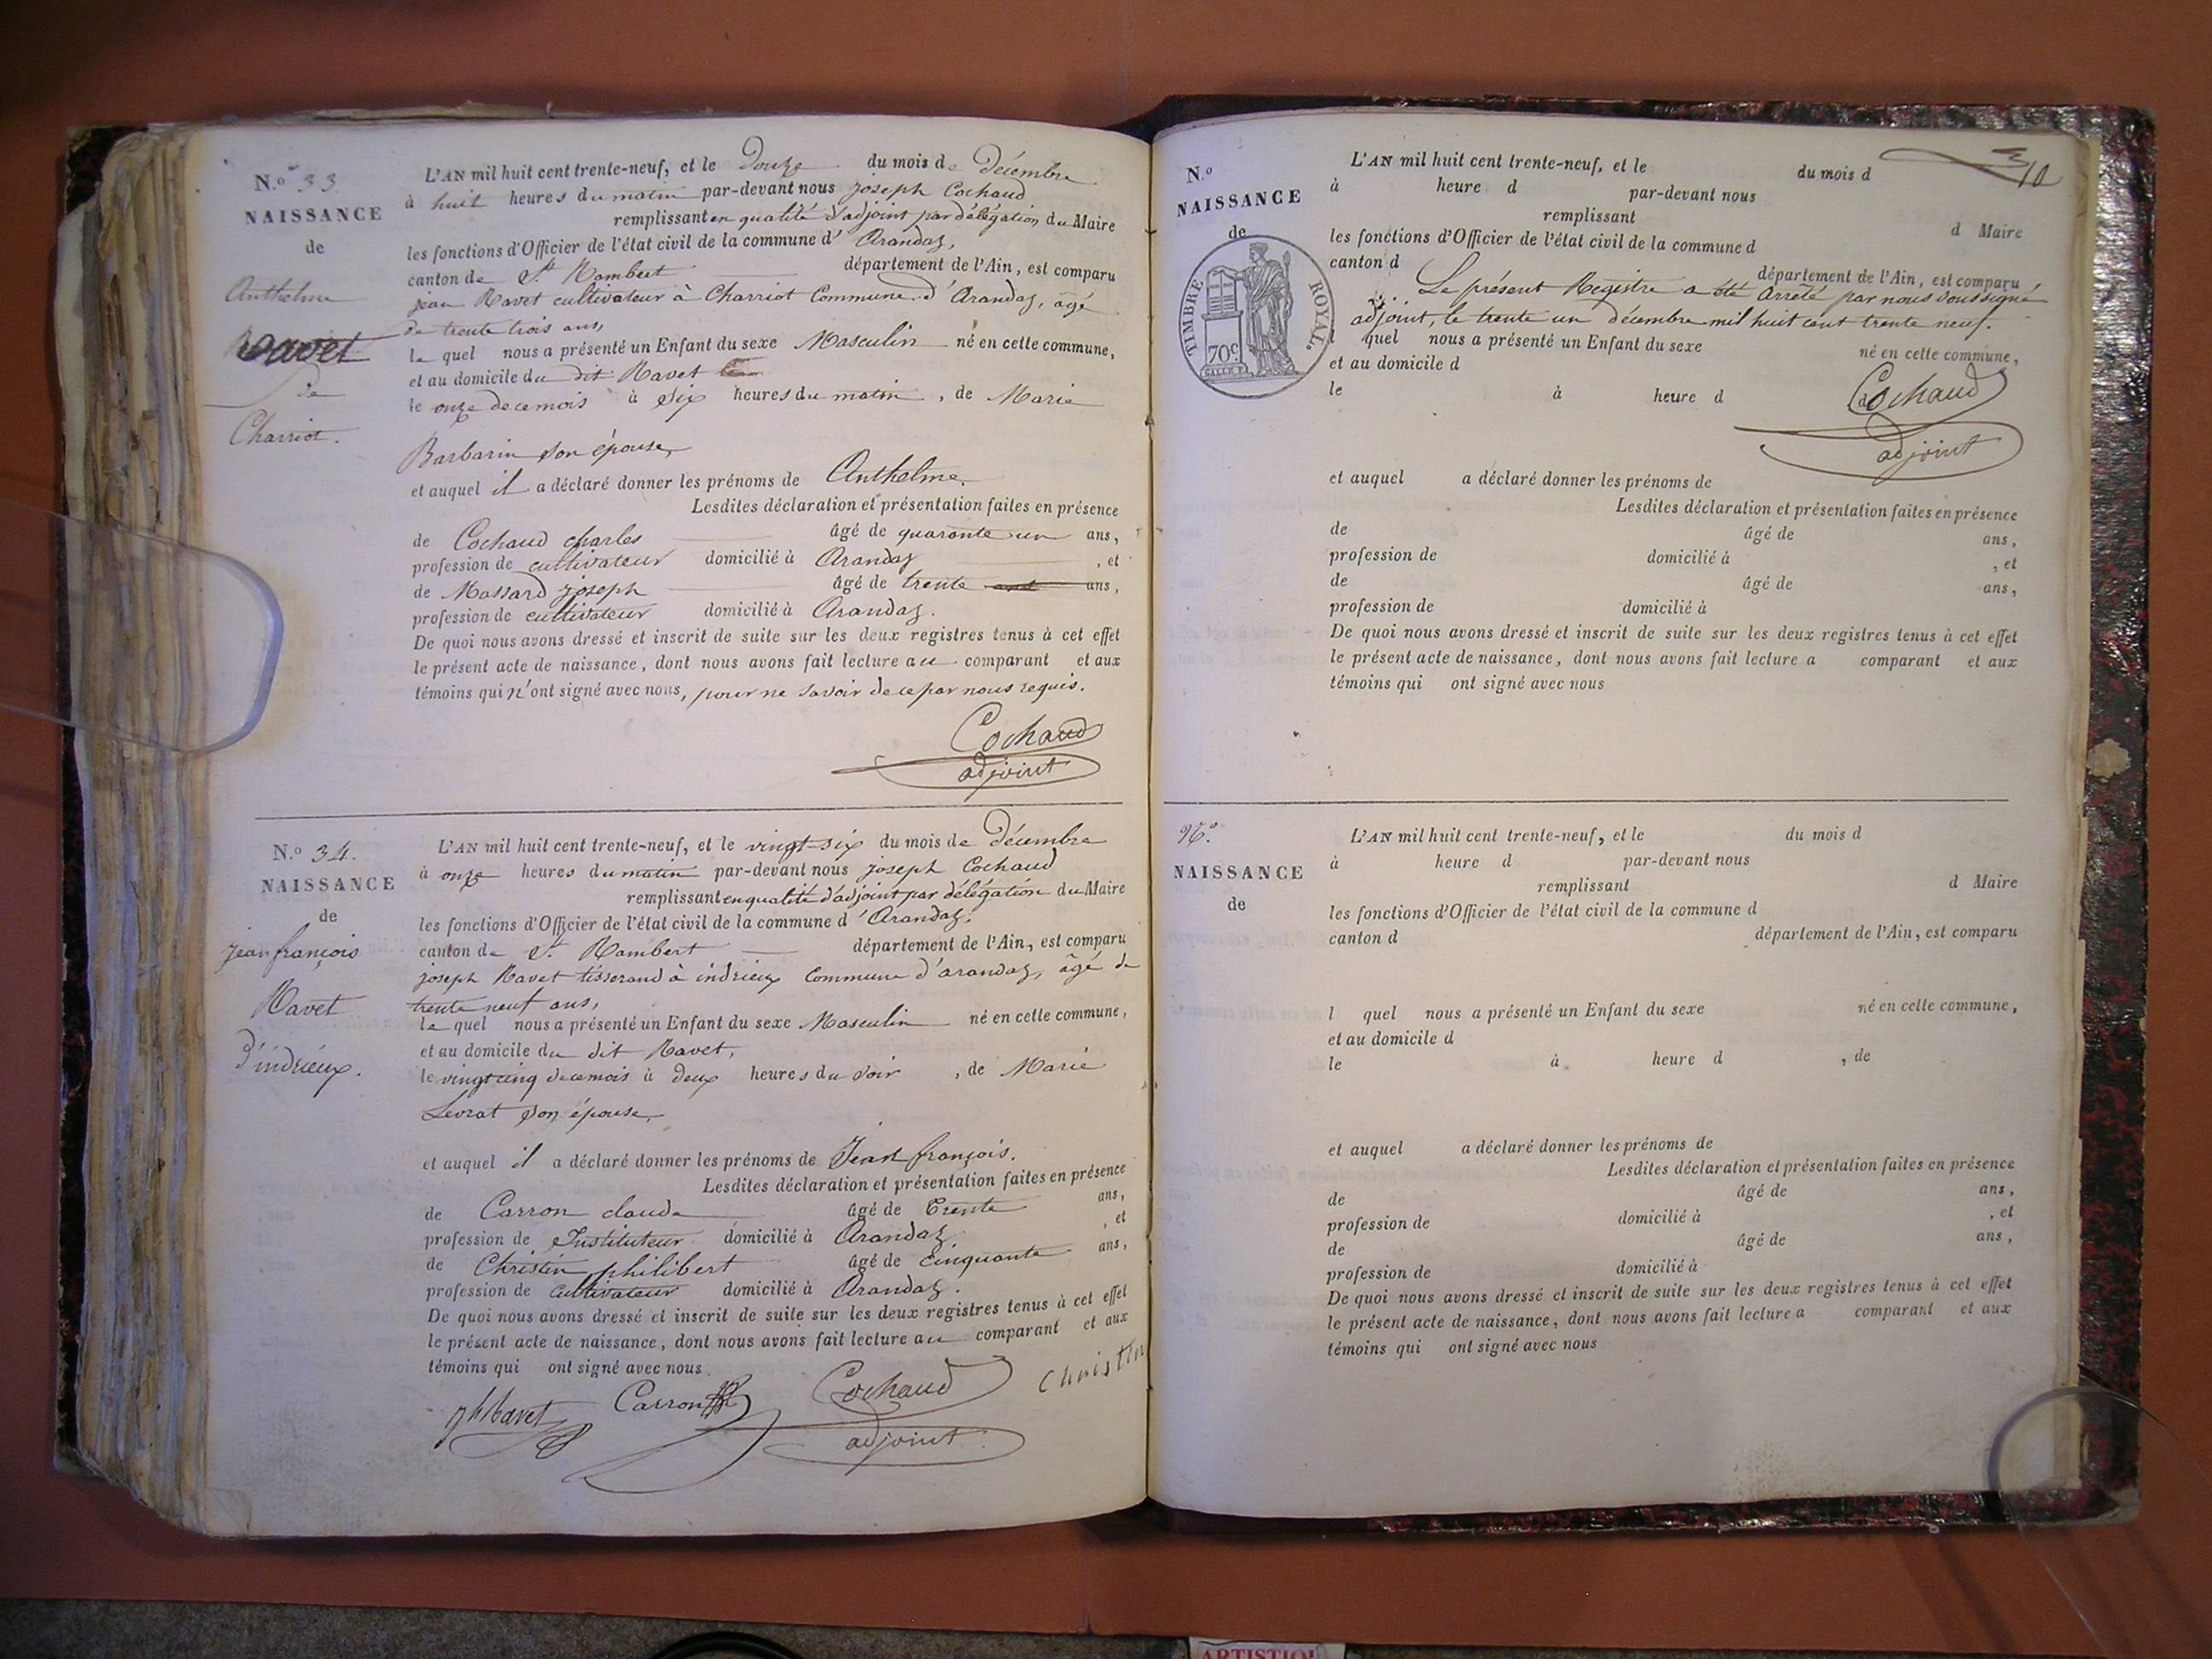 N.o 33
NAISSANCE
de
Anthelme
Ravet
de
Charriot.
L'AN mil huit cent trente-neuf, et le Douze du mois de Décembre
à huit heures du matin par-devant nous joseph Cochaud
remplissant en qualité d'adjoint par délégation du Maire
les fonctions d'Officier de l'état civil de la commune d' Arandaz,
canton de St. Rambert département de l'Ain, est comparu
jean Ravet cultivateur à Charriot Commune d'Arandaz, agé
de trente trois ans,
le quel nous a présenté un Enfant du sexe Masculin né en cette commune,
et au domicile du dit Ravet
le onze de ce mois à Six heures du matin, de Marie
Barbarin son épouse,
et auquel il a déclaré donner les prénoms de Anthelme.
Lesdites déclaration et présentation faites en présence
de Cochaud charles âgé de quarante un ans,
profession de cultivateur domicilié à Arandaz, et
de Massard joseph âgé de trente ans,
profession de cultivateur domicilié à Arandaz.
De quoi nous avons dressé et inscrit de suite sur les deux registres tenus à cet effet
le présent acte de naissance, dont nous avons fait lecture au comparant et aux
témoins qui n'ont signé avec nous, pour ne savoir de ce par nous requis.
Cochaud
adjoint
N.o 34.
NAISSANCE
de
jean françois
Ravet
d'indrieux.
L'AN mil huit cent trente-neuf, et le vingt-six du mois de Décembre
à onze heures du matin par-devant nous joseph Cochaud
remplissant en qualité d'adjoint par délégation du Maire
les fonctions d'Officier de l'état civil de la commune d'Arandaz.
canton de St. Rambert département de l'Ain, est comparu
joseph Ravet tisserand à indrieux Commune d'arandaz, âgé de
trente neuf ans,
le quel nous a présenté un Enfant du sexe Masculin né en cette commune,
et au domicile du dit Ravet,
le vingt cinq de ce mois à deux heures du Soir, de Marie
Levrat son épouse,
et auquel il a déclaré donner les prénoms de Jean françois.
Lesdites déclaration et présentation faites en présence
de Carron claude âgé de Trente ans,
profession de Instituteur domicilié à Arandaz, et
de Christin philibert âgé de Cinquante ans,
profession de Cultivateur domicilié à Arandaz.
De quoi nous avons dressé et inscrit de suite sur les deux registres tenus à cet effet
le présent acte de naissance, dont nous avons fait lecture au comparant et aux
témoins qui ont signé avec nous.
jh Ravet Carron Cochaud Christin
adjoint
10
N.o
NAISSANCE
de
TIMBRE ROYAL.
70c
L'AN mil huit cent trente-neuf, et le du mois d
à heure d par-devant nous
remplissant d Maire
les fonctions d'Officier de l'état civil de la commune d
canton d département de l'Ain, est comparu
Le présent Registre a été Arrêté par nous Soussigné
adjoint, le trente un décembre mil huit cent trente neuf.
quel nous a présenté un Enfant du sexe né en cette commune,
et au domicile d
le à heure d , d
Cochaud
adjoint
et auquel a déclaré donner les prénoms de
Lesdites déclaration et présentation faites en présence
de âgé de ans,
profession de domicilié à , et
de âgé de ans,
profession de domicilié à
De quoi nous avons dressé et inscrit de suite sur les deux registres tenus à cet effet
le présent acte de naissance, dont nous avons fait lecture a comparant et aux
témoins qui ont signé avec nous
N.o
NAISSANCE
de
L'AN mil huit cent trente-neuf, et le du mois d
à heure d par-devant nous
remplissant d Maire
les fonctions d'Officier de l'état civil de la commune d
canton d département de l'Ain, est comparu
l quel nous a présenté un Enfant du sexe né en cette commune,
et au domicile d
le à heure d , de
et auquel a déclaré donner les prénoms de
Lesdites déclaration et présentation faites en présence
de âgé de ans,
profession de domicilié à , et
de âgé de ans,
profession de domicilié à
De quoi nous avons dressé et inscrit de suite sur les deux registres tenus à cet effet
le présent acte de naissance, dont nous avons fait lecture a comparant et aux
témoins qui ont signé avec nous